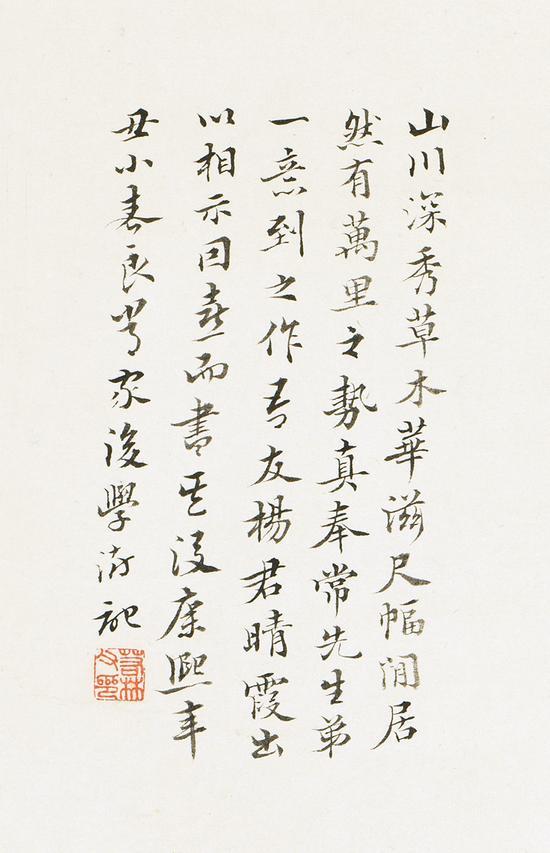 山川深秀草木華滋尺幅間居
然有萬里之勢真奉常先生弟
一意到之作吾友楊君晴霞出
以相示因喜而書其後康熙辛
丑小春良常家後學澍記